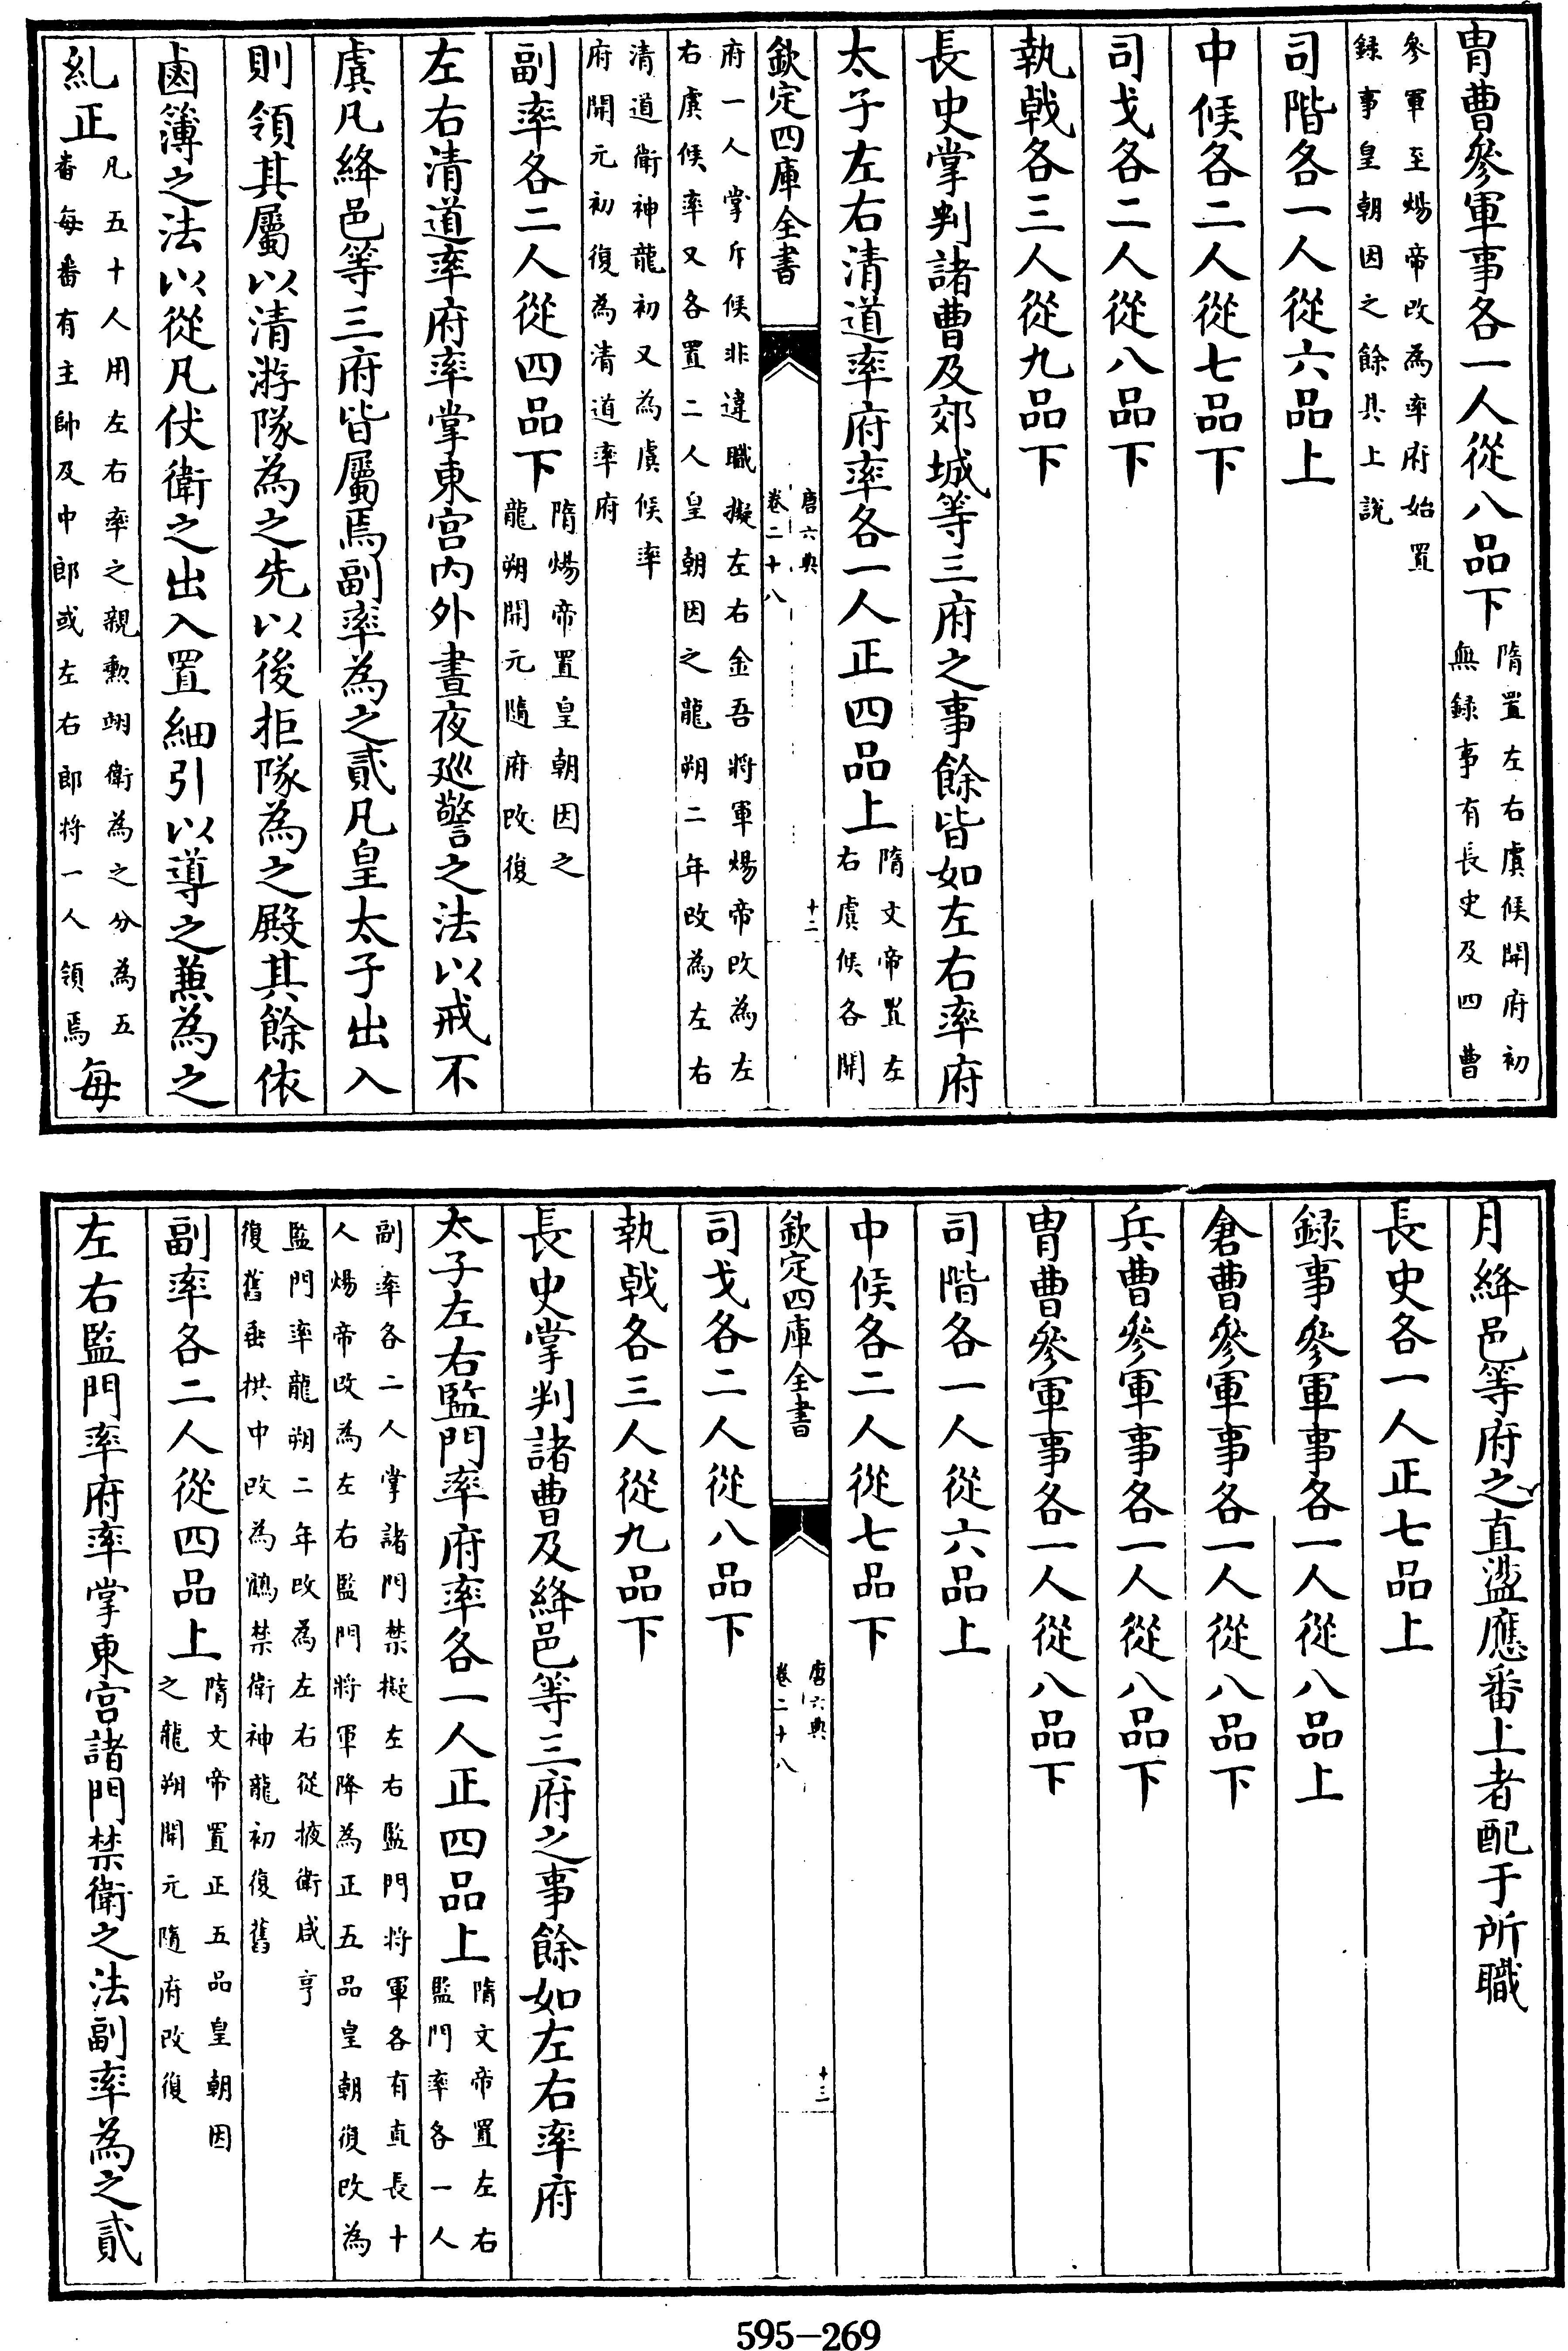 胄曹參軍事各一人從八品下隋置左右虞候開府初無録事有長史及四曹
參軍至煬帝改為率府始置録事皇朝因之餘具上說
司階各一人從六品上
中候各二人從七品下
司戈各二人從八品下
執戟各三人從九品下
長史掌判諸曹及郊城等三府之事餘皆如左右率府
太子左右清道率府率各一人正四品上隋文帝置左右虞候各開
欽定四庫全書 唐六典卷二十八 十二
府一人掌斥候非違職擬左右金吾將軍煬帝改為左右虞候率又各置二人皇朝因之龍朔二年改為左右
清道衛神龍初又為虞候率府開元初復為清道率府
副率各二人從四品下隋煬帝置皇朝因之龍朔開元隨府改復
左右清道率府率掌東宫内外晝夜廵警之法以戒不
虞凡絳邑等三府皆屬焉副率為之貳凡皇太子出入
則領其屬以清游隊為之先以後拒隊為之殿其餘依
鹵簿之法以從凡仗衛之出入置細引以導之兼為之
糺正凡五十人用左右率之親勲翊衛為之分為五番每番有主帥及中郎或左右郎將一人領焉每
月絳邑等府之直盪應番上者配于所職
長史各一人正七品上
録事參軍事各一人從八品上
倉曹參軍事各一人從八品下
兵曹參軍事各一人從八品下
胄曹參軍事各一人從八品下
司階各一人從六品上
中候各二人從七品下
欽定四庫全書 唐六典卷二十八 十三
司戈各二人從八品下
執戟各三人從九品下
長史掌判諸曹及絳邑等三府之事餘如左右率府
太子左右監門率府率各一人正四品上隋文帝置左右監門率各一人
副率各二人掌諸門禁擬左右監門將軍各有直長十人煬帝改為左右監門將軍降為正五品皇朝復改為
監門率龍朔二年改為左右從掖衛咸亨復舊垂拱中改為鶴禁衛神龍初復舊
副率各二人從四品上隋文帝置正五品皇朝因之龍朔開元隨府改復
左右監門率府率掌東宫諸門禁衛之法副率為之貳
595-269